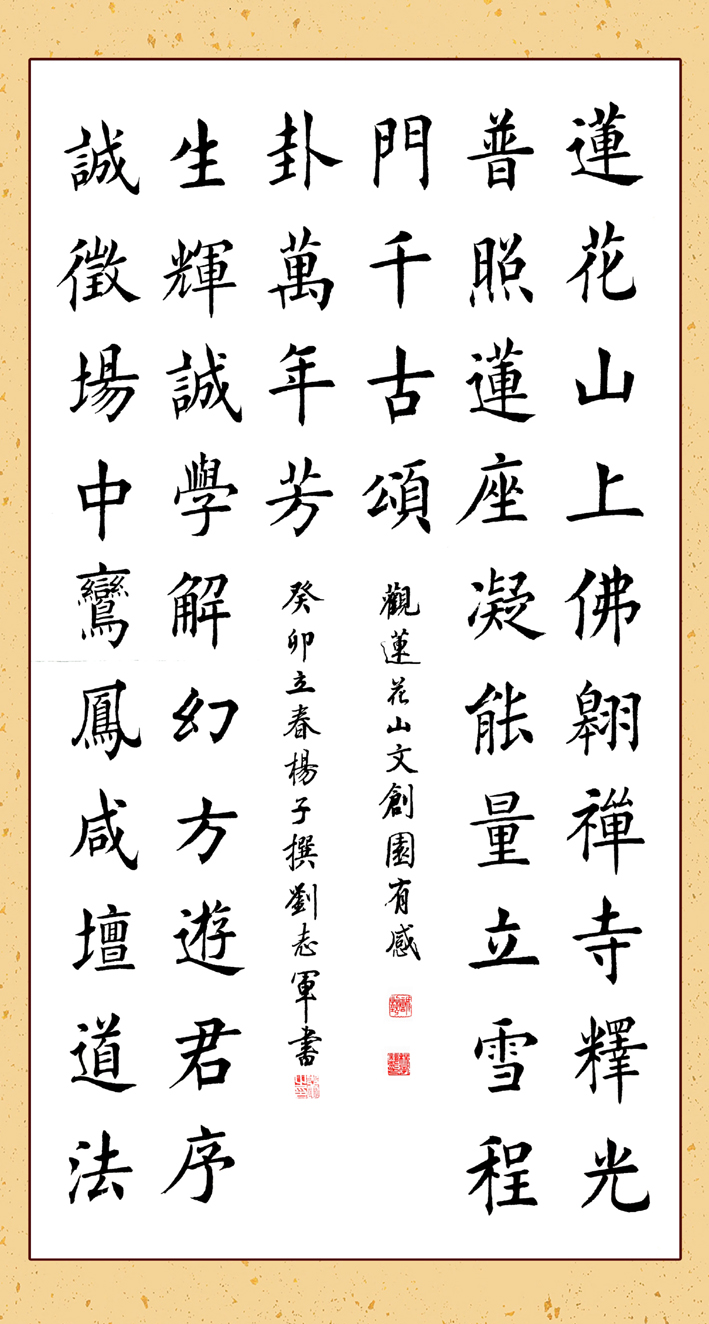 蓮花山上佛翺禪寺釋光
普照蓮座凝能量立雪程
門千古頌
誠徵場中鸞鳳咸壇道法
生輝誠學解幻方遊君序
卦萬年芳
觀蓮花山文創園有感
癸卯立春楊子撰劉志軍書